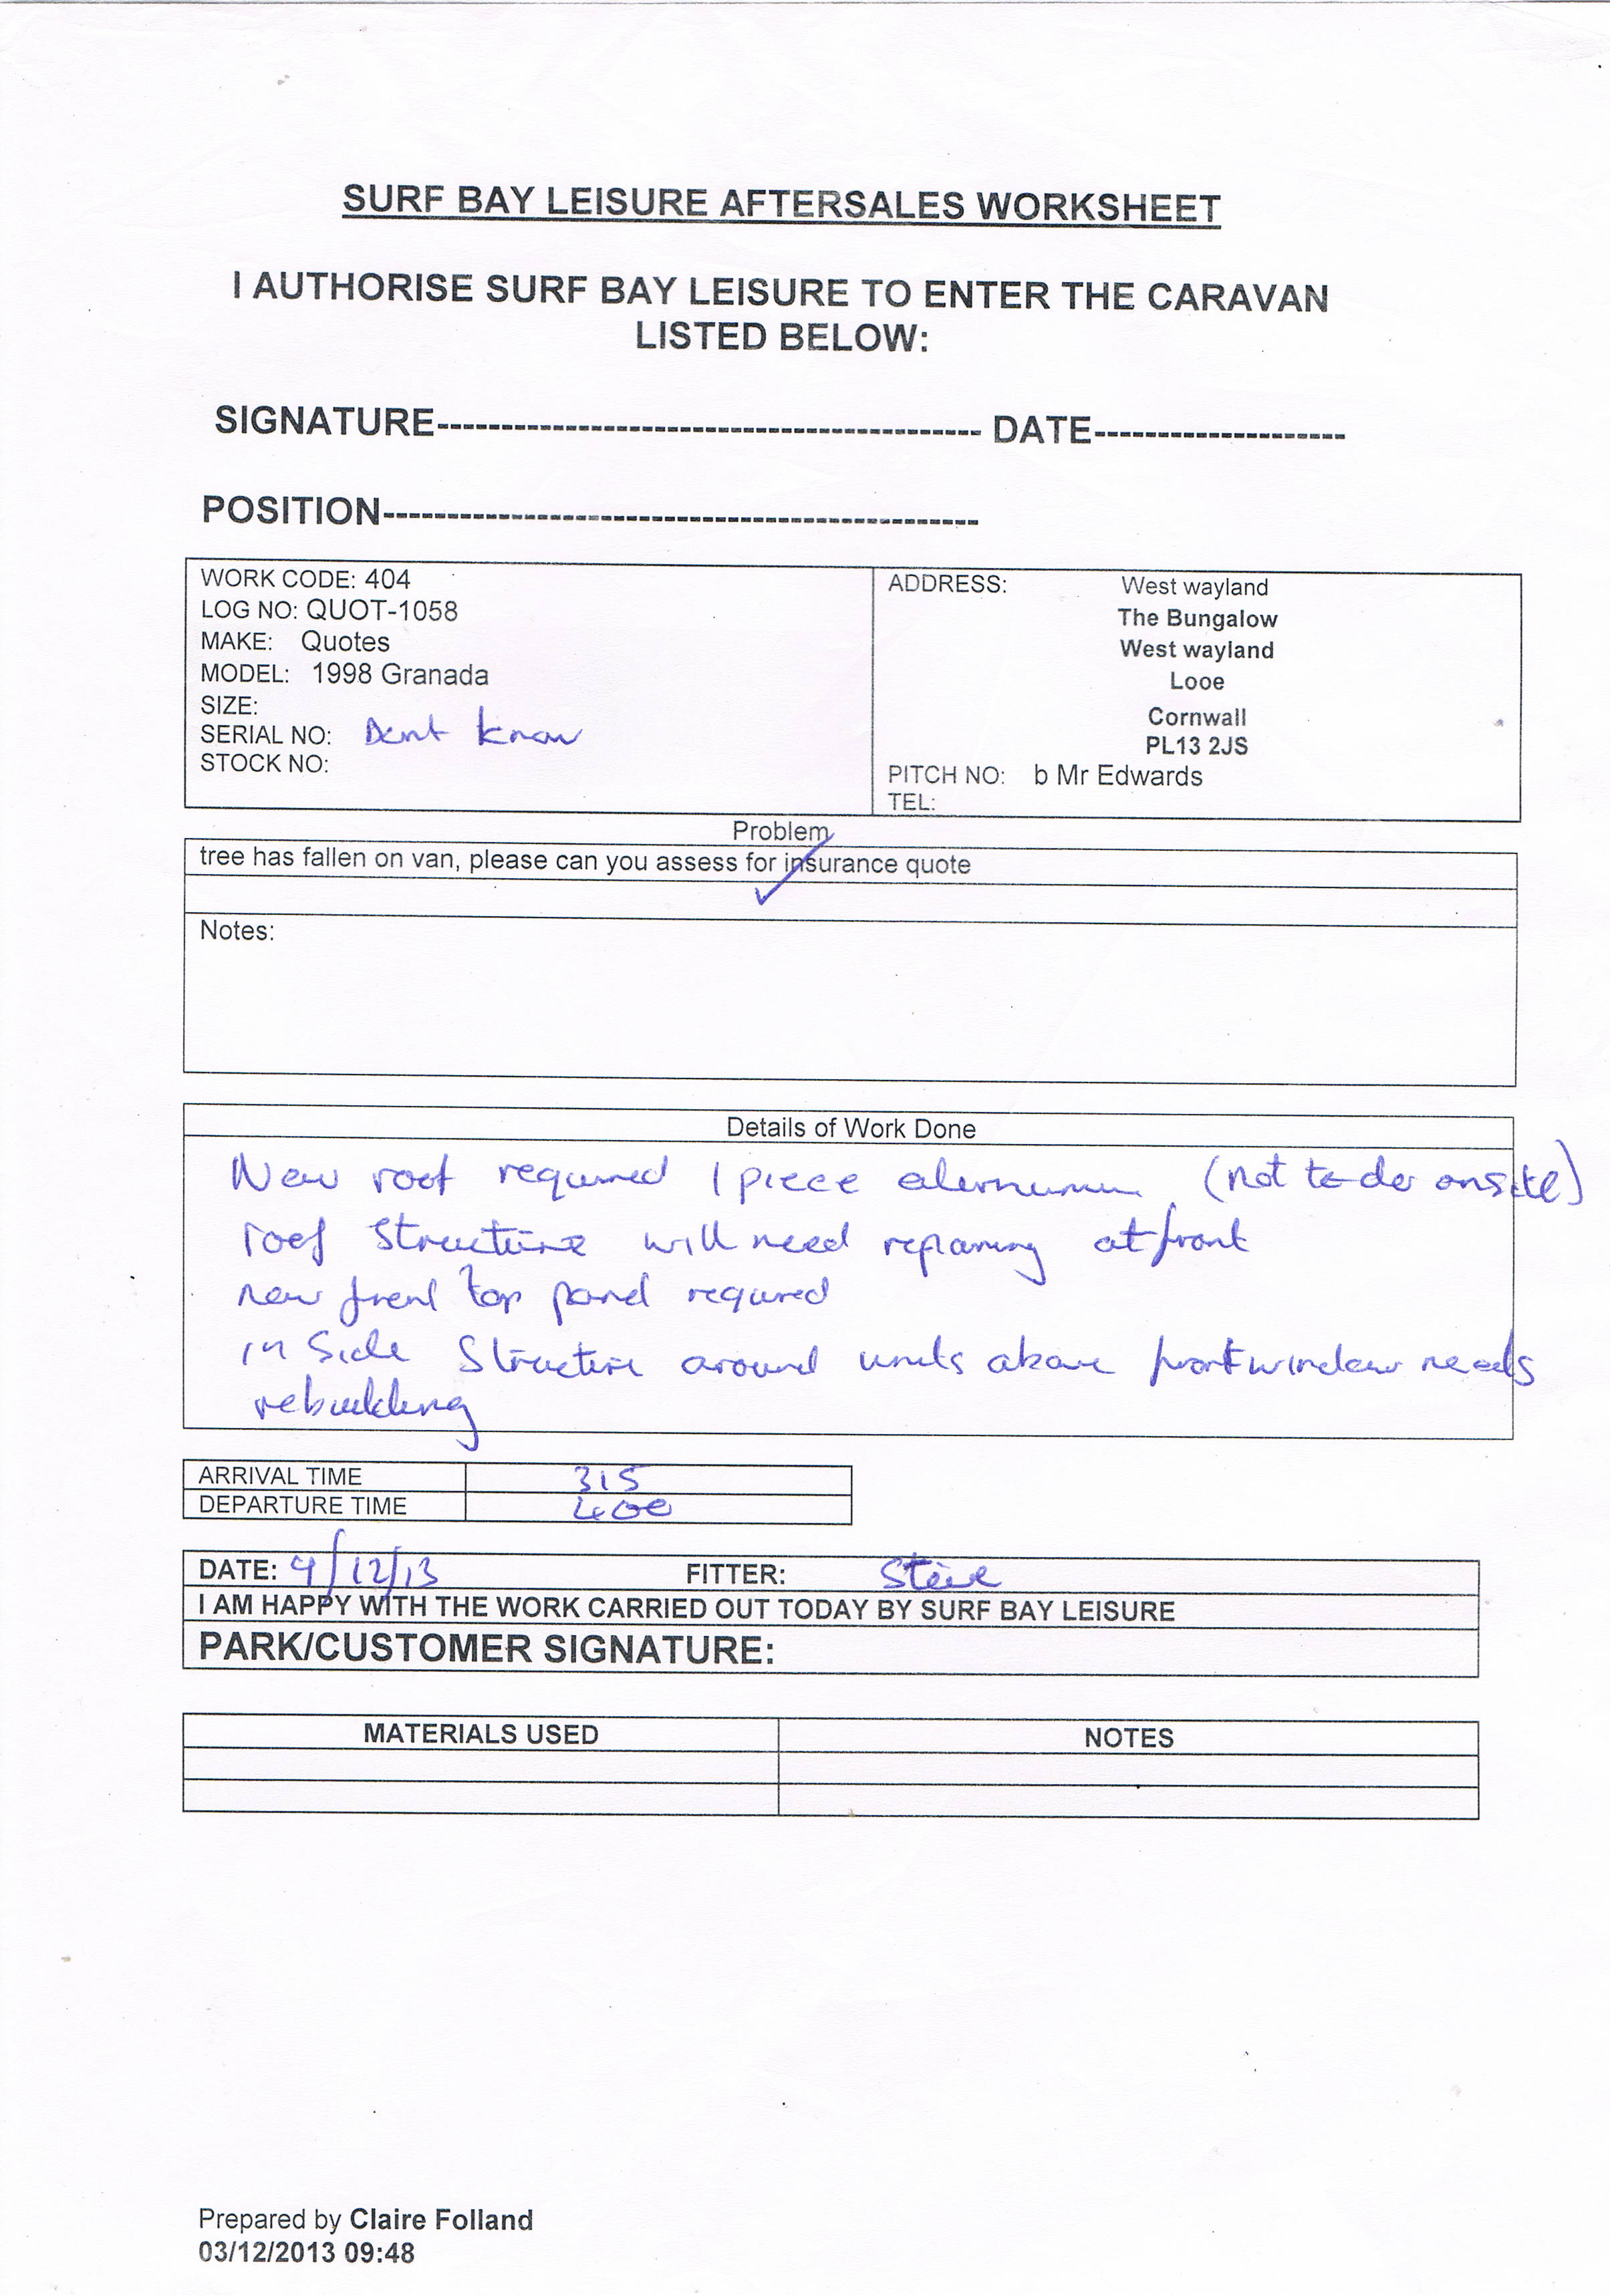 SURF BAY LEISURE AFTERSALES WORKSHEET
I AUTHORISE SURF BAY LEISURE TO ENTER THE CARAVAN
LISTED BELOW:
SIGNATURE------------------------------------------ DATE--------------------
POSITION----------------------------------------------
WORK CODE: 404
LOG NO: QUOT-1058
MAKE: Quotes
MODEL: 1998 Granada
SIZE:
SERIAL NO: Dont know
STOCK NO:
ADDRESS: West wayland
The Bungalow
West wayland
Looe
Cornwall
PL13 2JS
PITCH NO: b Mr Edwards
TEL:
Problem
tree has fallen on van, please can you assess for insurance quote
Notes:
Details of Work Done
New roof required 1 piece (not to do onsite)
roof structure will need repairing at front
new front top panel required
inside structure around units above front window needs
rebuilding
ARRIVAL TIME 315
DEPARTURE TIME 400
DATE: 4/12/13 FITTER: Steve
I AM HAPPY WITH THE WORK CARRIED OUT TODAY BY SURF BAY LEISURE
PARK/CUSTOMER SIGNATURE:
MATERIALS USED NOTES
Prepared by Claire Folland
03/12/2013 09:48